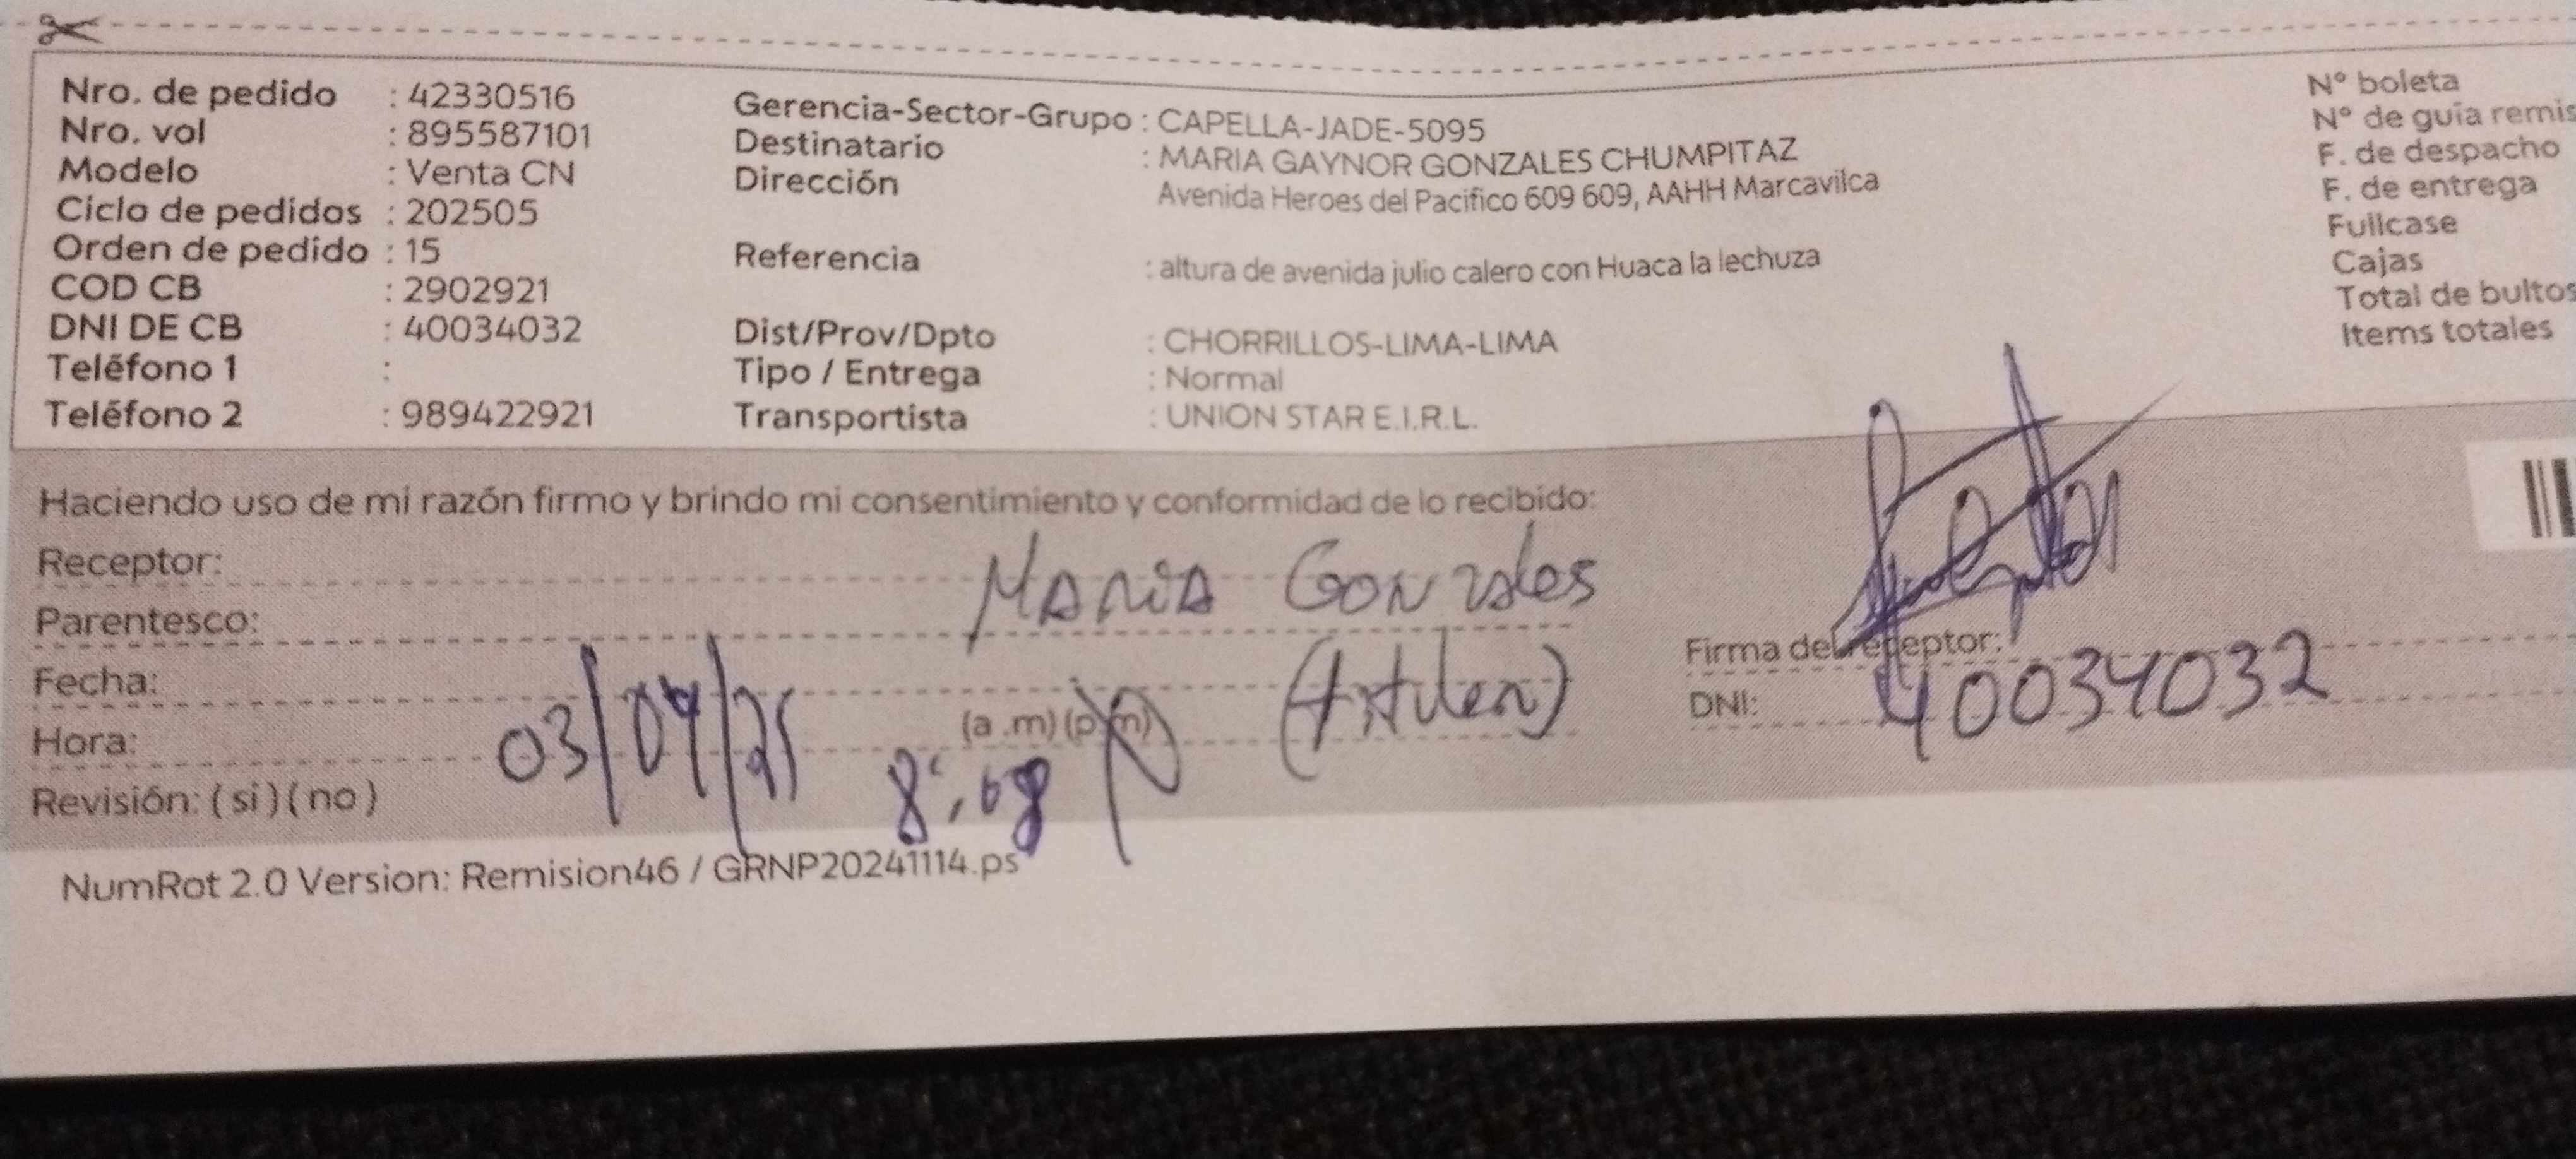 Nro. de pedido : 42330516
Nro. vol : 895587101
Modelo : Venta CN
Ciclo de pedidos : 202505
Orden de pedido : 15
COD CB : 2902921
DNI DE CB : 40034032
Teléfono 1 :
Teléfono 2 : 989422921
Gerencia-Sector-Grupo : CAPELLA-JADE-5095
Destinatario : MARIA GAYNOR GONZALES CHUMPITAZ
Dirección Avenida Heroes del Pacifico 609 609, AAHH Marcavilca
Referencia : altura de avenida julio calero con Huaca la lechuza
Dist/Prov/Dpto : CHORRILLOS-LIMA-LIMA
Tipo / Entrega : Normal
Transportista : UNION STAR E.I.R.L.
N° boleta
N° de guía remis
F. de despacho
F. de entrega
Fullcase
Cajas
Total de bultos
Items totales
Haciendo uso de mi razón firmo y brindo mi consentimiento y conformidad de lo recibido:
Receptor: Maria Gonzales
Parentesco:
Fecha: 03/04/25
Hora: 8:08 (a.m) (p.m)
Revisión: ( si ) ( no )
Firma del receptor:
DNI: 40034032
NumRot 2.0 Version: Remision46 / GRNP20241114.ps